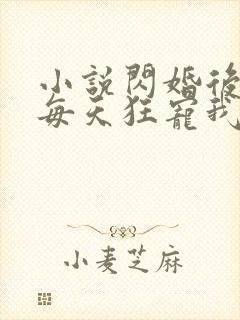 小說閃婚後
每天狂寵我
小麦芝麻